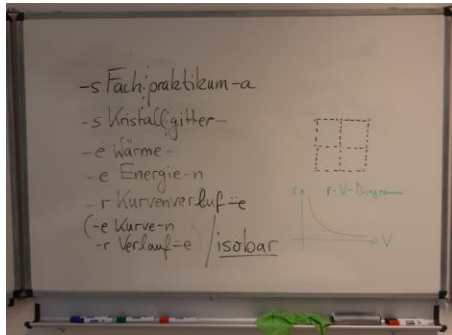 -s Fach:praktikum-a
-s Kristall:gitter-
-e Wärme-
-e Energie-n
-r Kurvenverlauf-¨e
(-e Kurve-n
-r Verlauf-¨e)
/isobar
p-V-Diagramm
P
V